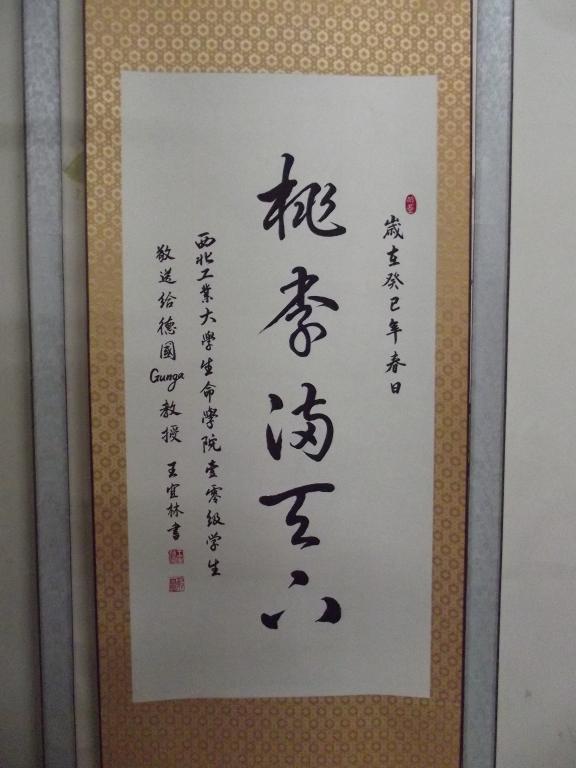 歲在癸巳年春日
桃李满天下
西北工業大學生命學院壹零级学生
敬送给德國Gunga教授 王宜林書